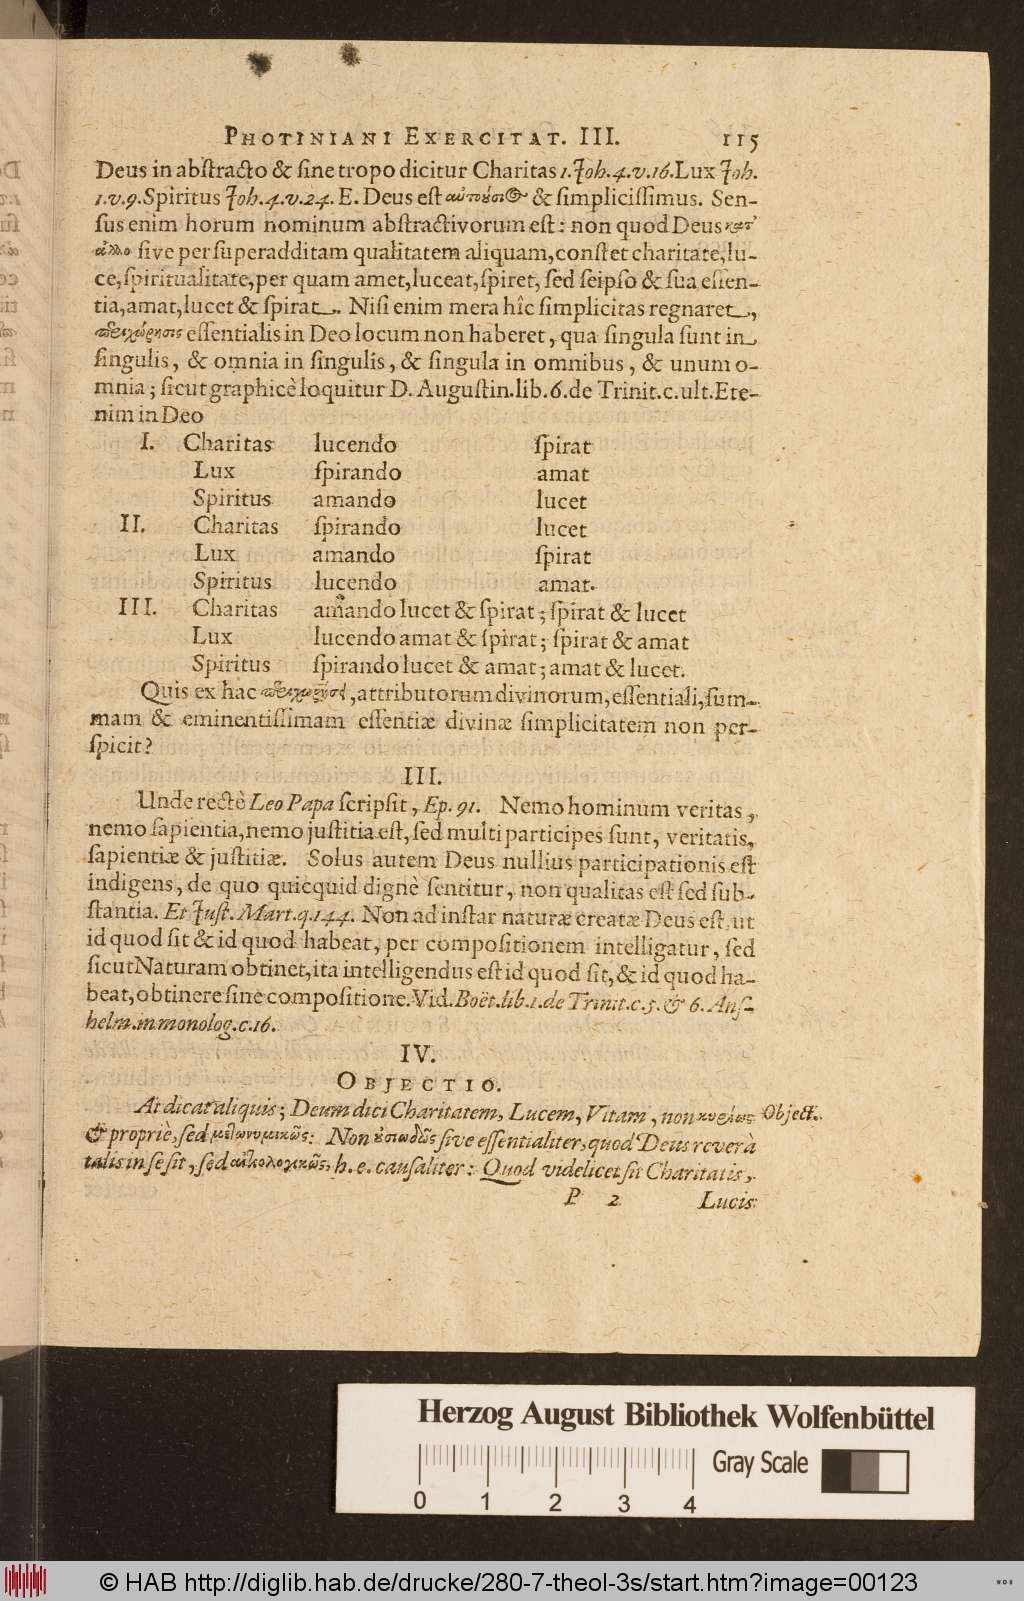 PHOTINIANI EXERCITAT. III. 115
Deus in abſtracto & ſine tropo dicitur Charitas 1. Joh. 4. v. 16. Lux Joh.
1. v. 9. Spiritus Joh. 4. v. 24. E. Deus eſt αὐτούσι & ſimpliciſſimus. Sen-
ſus enim horum nominum abſtractivorum eſt: non quod Deus κατ'
ἄλλο ſive per ſuperadditam qualitatem aliquam, conſtet charitate, lu-
ce, ſpiritualitate, per quam amet, luceat, ſpiret, ſed ſeipſo & ſua eſſen-
tia, amat, lucet & ſpirat. Niſi enim mera hîc ſimplicitas regnaret,
περιχώρησις eſſentialis in Deo locum non haberet, qua ſingula ſunt in
ſingulis, & omnia in ſingulis, & ſingula in omnibus, & unum o-
mnia; ſicut graphicè loquitur D. Auguſtin. lib. 6. de Trinit. c. ult. Ete-
nim in Deo
I. Charitas lucendo ſpirat
Lux ſpirando amat
Spiritus amando lucet
II. Charitas ſpirando lucet
Lux amando ſpirat
Spiritus lucendo amat.
III. Charitas amando lucet & ſpirat; ſpirat & lucet
Lux lucendo amat & ſpirat; ſpirat & amat
Spiritus ſpirando lucet & amat; amat & lucet.
Quis ex hac περιχωρήσει, attributorum divinorum, eſſentiali, ſum-
mam & eminentiſſimam eſſentiæ divinæ ſimplicitatem non per-
ſpicit?
III.
Unde rectè Leo Papa ſcripſit, Ep. 91. Nemo hominum veritas,
nemo ſapientia, nemo juſtitia eſt, ſed multi participes ſunt, veritatis,
ſapientiæ & juſtitiæ. Solus autem Deus nullius participationis eſt
indigens, de quo quicquid dignè ſentitur, non qualitas eſt ſed ſub-
ſtantia. Et Juſt. Mart. q. 144. Non ad inſtar naturæ creatæ Deus eſt, ut
id quod ſit & id quod habeat, per compoſitionem intelligatur, ſed
ſicut Naturam obtinet, ita intelligendus eſt id quod ſit, & id quod ha-
beat, obtinere ſine compoſitione. Vid. Boët. lib. 1. de Trinit. c. 5. & 6. Anſ-
helm. in monolog. c. 16.
IV.
OBJECTIO.
At dicat aliquis; Deum dici Charitatem, Lucem, Vitam, non κυρίως Object.
& propriè, ſed μετωνυμικῶς: Non ὐσιωδῶς ſive eſſentialiter, quod Deus reverà
talis in ſe ſit, ſed αἰτιολογικῶς, h. e. cauſaliter: Quod videlicet ſit Charitatis,
P 2 Lucis
Herzog August Bibliothek Wolfenbüttel
Gray Scale
0 1 2 3 4
© HAB http://diglib.hab.de/drucke/280-7-theol-3s/start.htm?image=00123